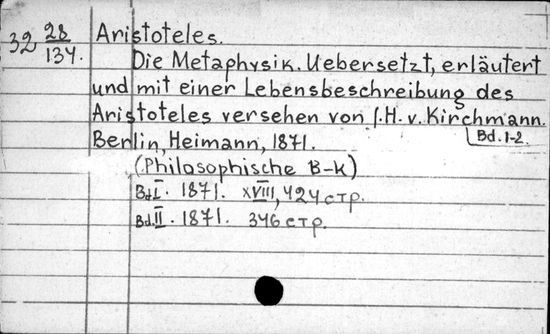 32 28/134. Aristoteles.
Die Metaphysik. Uebersetzt, erläutert
und mit einer Lebensbeschreibung des
Aristoteles versehen von J.H. v. Kirchmann.
Berlin, Heimann, 1871. Bd. 1-2.
(Philosophische B-k)
Bd I. 1871. XVIII, 424 стр.
Bd. II. 1871. 346 стр.